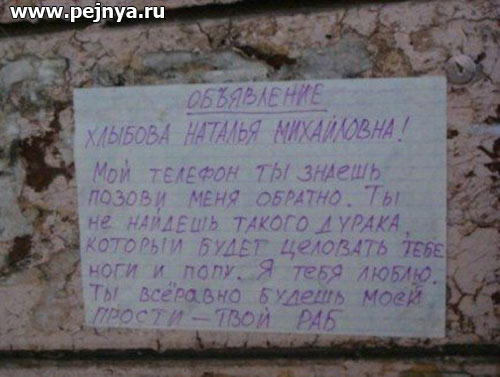 www.pejnya.ru
ОБЪЯВЛЕНИЕ
ХЛЫБОВА НАТАЛЬЯ МИХАЙЛОВНА!
МОЙ ТЕЛЕФОН ТЫ ЗНАЕШЬ
ПОЗОВИ МЕНЯ ОБРАТНО. ТЫ
НЕ НАЙДЕШЬ ТАКОГО ДУРАКА,
КОТОРЫЙ БУДЕТ ЦЕЛОВАТЬ ТЕБЕ
НОГИ И ПОПУ. Я ТЕБЯ ЛЮБЛЮ.
ТЫ ВСЁРАВНО БУДЕШЬ МОЕЙ
ПРОСТИ — ТВОЙ РАБ